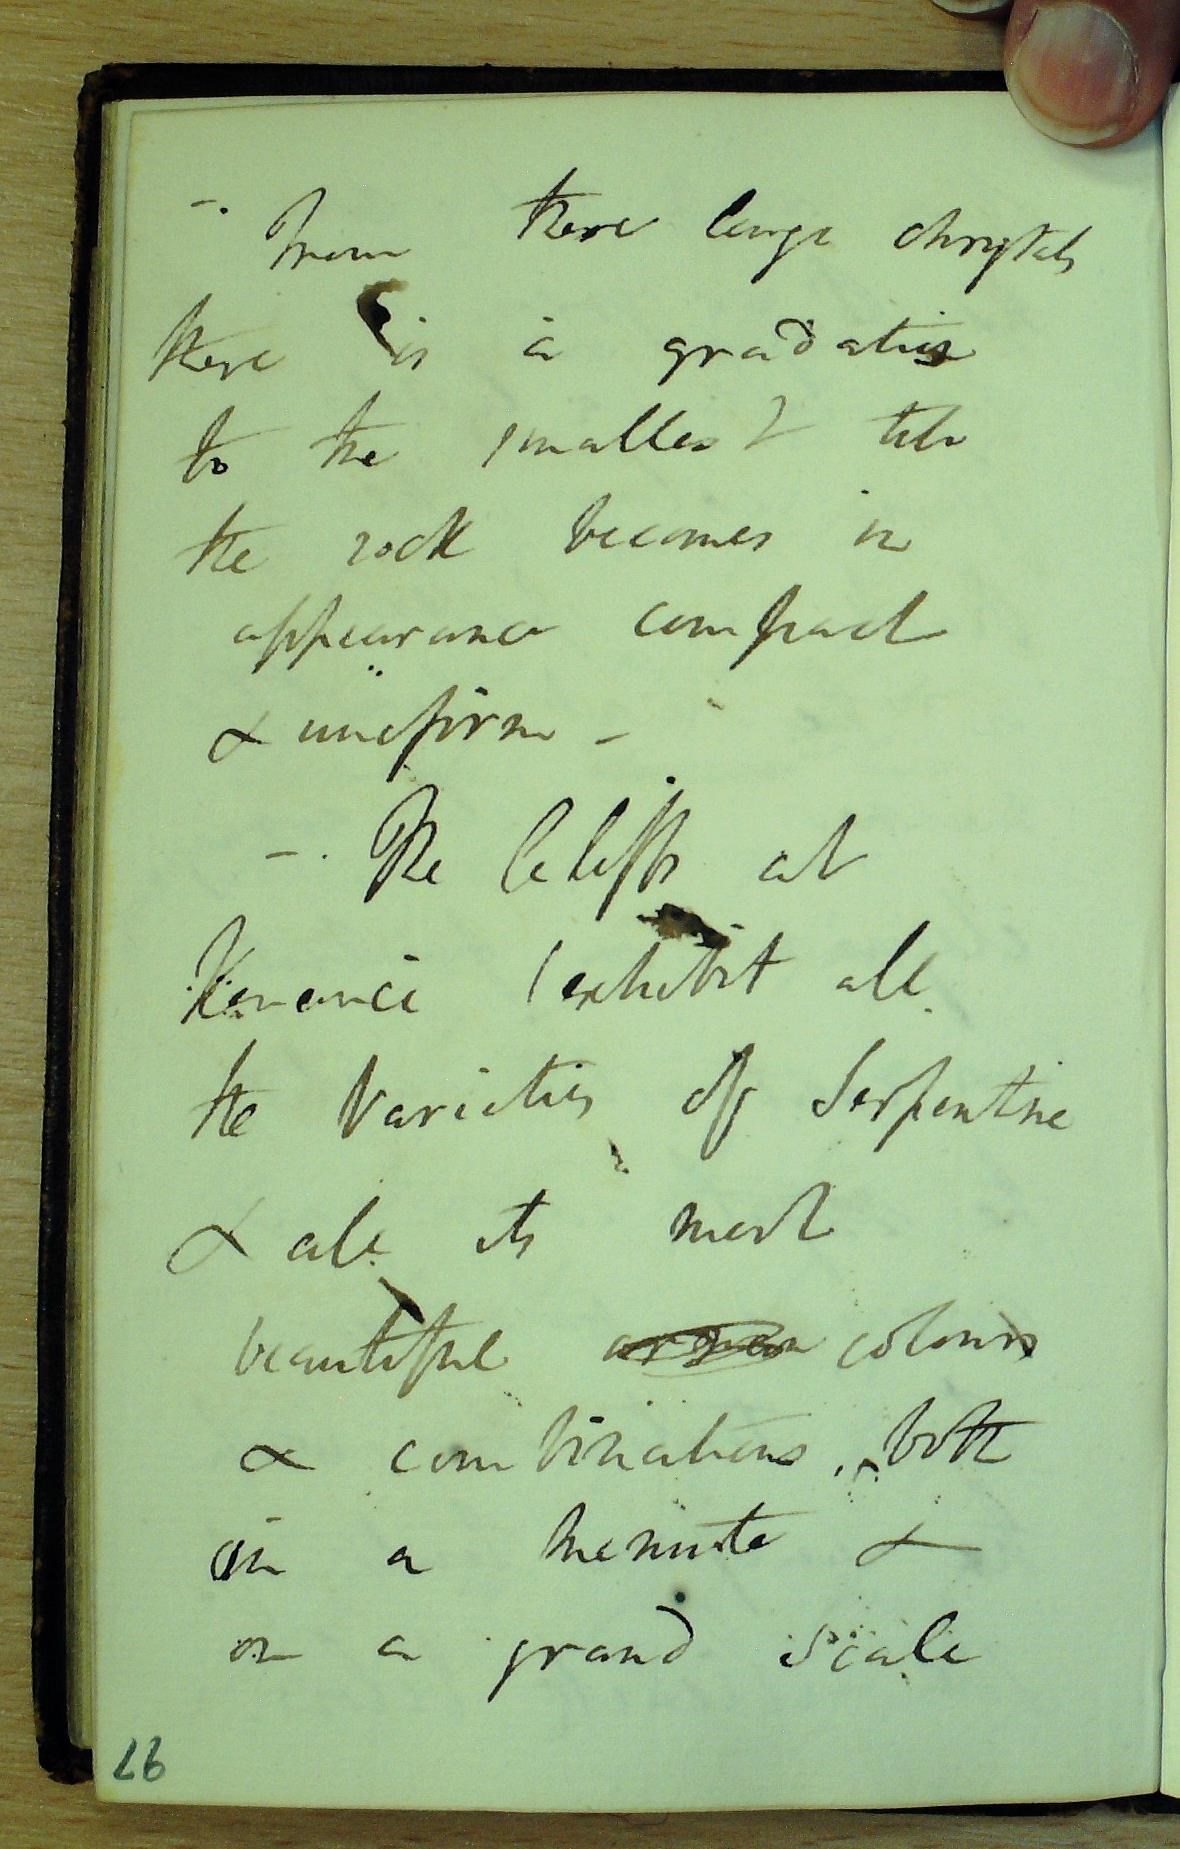 –. From these large chrystals
there is a gradation
to the smallest till
the rock becomes in
appearance compact
& uniform –
–. The Cliffs at
Kenance exhibit all
the Varieties of Serpentine
& all its most
beautiful colours
& combinations, both
in a minute &
on a grand scale
26